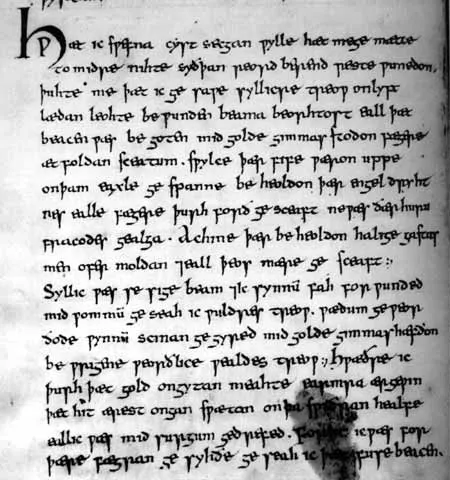 Hƿæt ic sƿefna cyst secgan ƿylle hæt mege mætte
to midre nihte syðþan reord berend reste ƿunedon.
þuhte me þæt ic ge saƿe syllicre treoƿ onlyft
lædan leohte be ƿunden beama beorhtost eall þæt
beacen ƿæs be goten mid golde gimmas stodon fægere
æt foldan sceatum. sƿylce þær fife ƿæron uppe
onþam eaxle ge spanne be heoldon þær engel dryht
nes ealle fægere þurh forð ge sceaft ne ƿæs ðær huru
fracodes gealga. Achine þær be heoldon halige gastas
men ofer moldan ⁊eall þeos mære ge sceaft:,
Syllic ƿæs se sige beam ⁊ic synnū fah for ƿunded
mid ƿommū ge seah ic ƿuldres treoƿ. ƿædum ge ƿeor
ðode ƿynnū scinan ge gyred mid golde gimmas hæfdon
be ƿrigene ƿeorðlice ƿealdes treoƿ:, hƿæðre ic
þurh þæt gold ongytan meahte earmra ærgeƿin
þæt hit ærest ongan sƿætan onþa sƿiðran healfe
eall ic ƿæs mid surgum gedrefed. forht ic ƿæs for
þære fægran ge syhðe ge seah ic þæt fuse beacen.